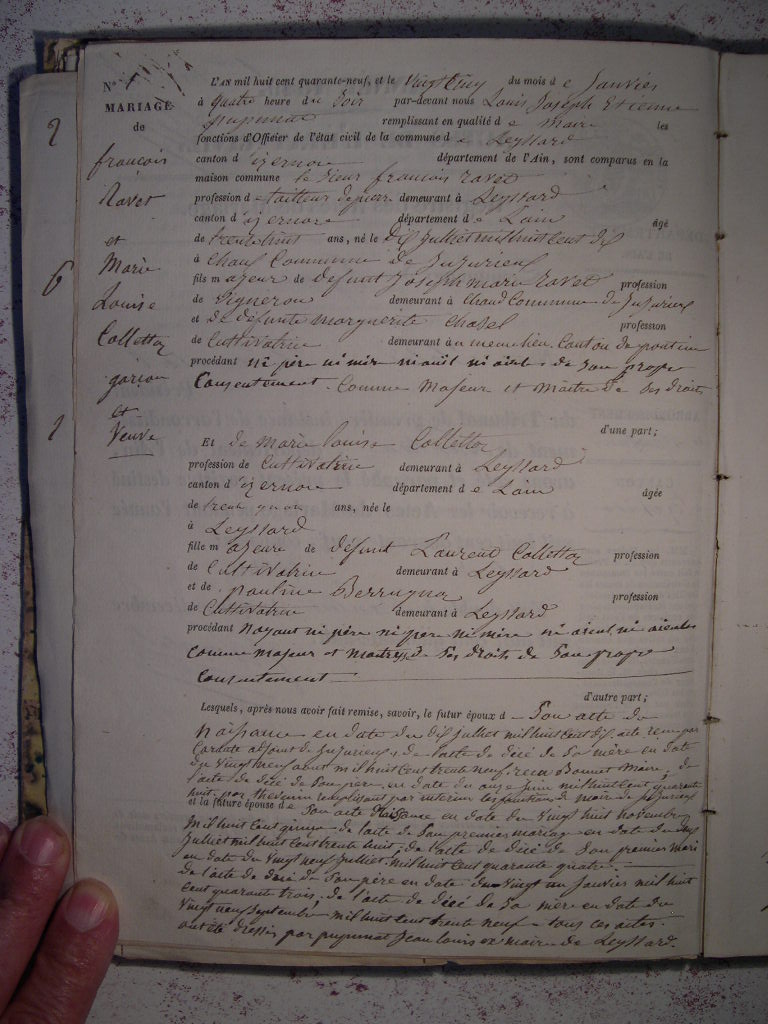 N°
MARIAGE
de
françois
Ravet
et
Marie
Louise
Collettaz
garçon
et
Veuve
2
6
1
L'AN mil huit cent quarante-neuf, et le Vingt Cinq du mois de Janvier
à quatre heure du Soir par-devant nous Louis Joseph Etienne
pupunat remplissant en qualité de Maire les
fonctions d'Officier de l'état civil de la commune de Leyssard
canton d'izernore département de l'Ain, sont comparus en la
maison commune le Sieur francois ravet
profession de tailleur de pierre demeurant à Leyssard
canton d'izernore département de Lain âgé
de trente huit ans, né le Dix Julliet mil huit Cent dix
à Chaux Commune de Jujurieux
fils majeur de defunt Joseph marie ravet profession
de Vigneron demeurant à Chaux Commune de Jujurieux
et de défunte marguerite Chatel profession
de Cultivatrice demeurant à u meme lieu. Canton de poncin
procédant ni père ni mère ni aieul ni aieule de Son propre
Consentement. Comme Majeur et Maitre de Ses droits
d'une part;
Et de marie louise Collettaz
profession de Cultivatrice demeurant à Leyssard
canton d'izernore département de Lain âgée
de trente ans, née le
à Leyssard
fille majeure de défunt Laurend Collettaz profession
de Cultivatrice demeurant à Leyssard
et de pauline profession
de Cultivatrice demeurant à Leyssard
procédant Nayant ni père ni père ni mère ni aieul ni aieule
Comme majeur et de Ses droits de Son propre
Consentement
d'autre part;
Lesquels, après nous avoir fait remise, savoir, le futur époux de Son acte de
naissance en date du dix julliet mil huit Cent dix. acte reçu par
adjoint de Jujurieux, de lacte de décé de Sa mère en date
du Vingt neuf aout mil huit Cent trente neuf reçu Bonnet Maire, de
lacte de décé de Son père, en date du onze juin mil huit Cent quarante
huit. par remplissant par interim les fonctions de maire de jujurieux
et la future épouse de Son acte Naissance en date du Vingt huit novembre
Mil huit Cent de lacte de Son premier mariage en date du
Julliet mil huit Cent trente huit, de lacte de décé de Son premier mari
en date du Vingt neuf Julliet, mil huit Cent quarante quatre.
de lacte de décé de Son père en date du Vingt un Janvier mil huit
Cent quarante trois, de lacte de décé de Sa mère en date du
Vingt neuf Septembre mil huit Cent trente neuf - tous ces actes.
ont été dressés par pupunat Jean louis ex maire de Leyssard.